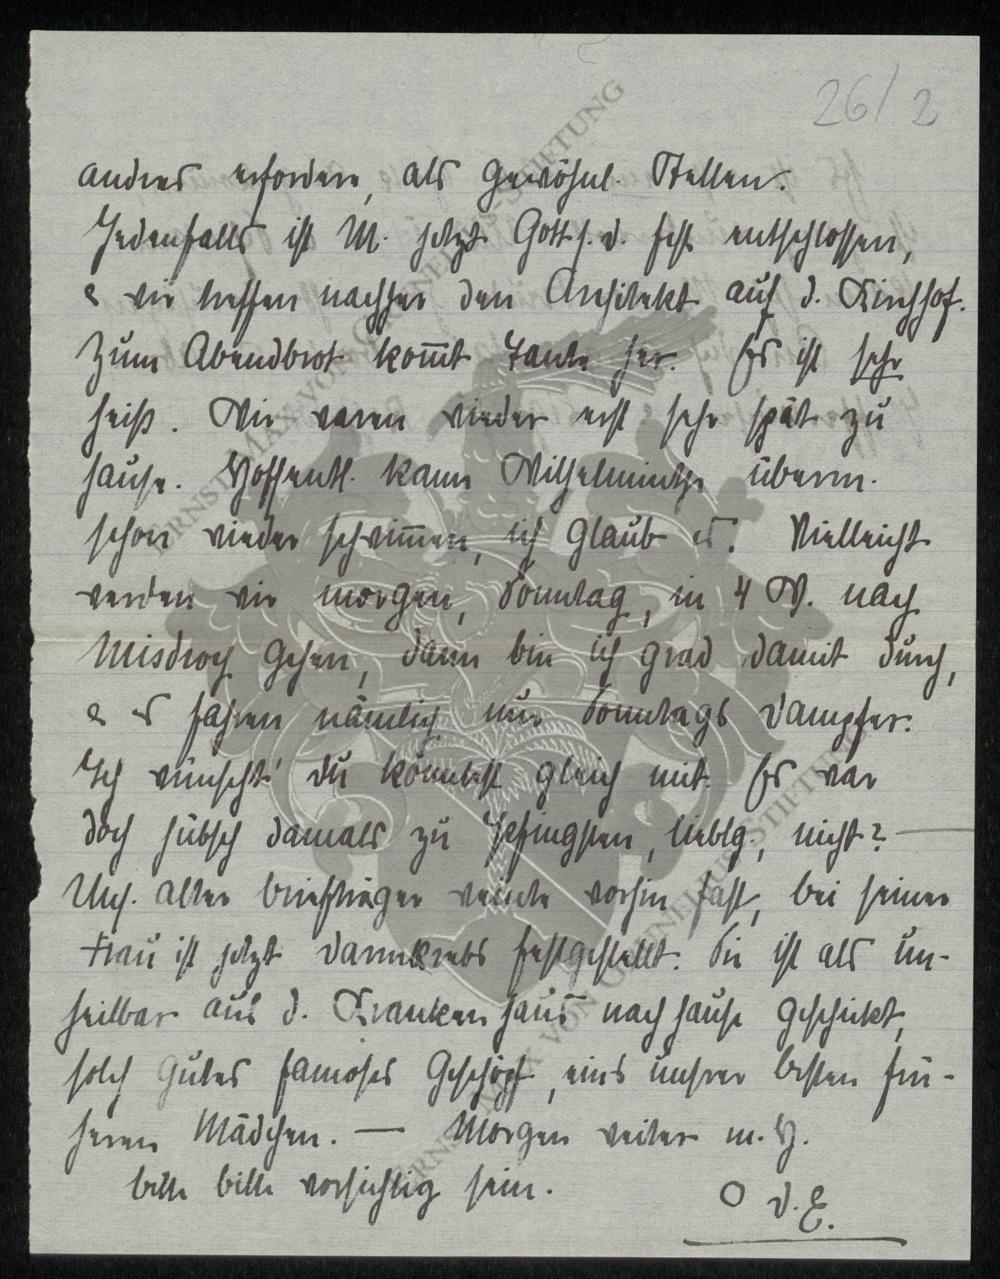 26/2
andres erfordere, als gewöhnl. Stellen.
Jedenfalls ist M. jetzt Gott s. d. fest entschlossen,
& wir treffen nachher den Architekt auf d. Kirchhof.
Zum Abendbrot kom̄t Tante her. Es ist sehr
heiß. Wir waren wieder erst sehr spät zu
hause. Hoffentl. kann Wilhelminthe überm.
schon wieder schwim̄en, ich glaub es. Vielleicht
werden wir morgen, Sonntag, in 4 W. nach
Misdroy gehen, dann bin ich grad damit durch,
& es fahren nämlich nur Sonntags Dampfer.
Ich wünscht' du könntest gleich mit. Es war
doch hübsch damals zu Pfingsten, lieblg, nicht? —
Uns. alter Briefträger weinte vorhin fast, bei seiner
Frau ist jetzt Darmkrebs festgestellt. Sie ist als un-
heilbar aus d. Krankenhaus nach hause geschickt,
solch gutes famoses Geschöpf, eins unsrer besten frü-
heren Mädchen. — Morgen weiter m. H.
bitte bitte vorsichtig sein.
O d. E.
ERNST MAX VON GRUNELIUS-STIFTUNG
ERNST MAX VON GRUNELIUS-STIFTUNG